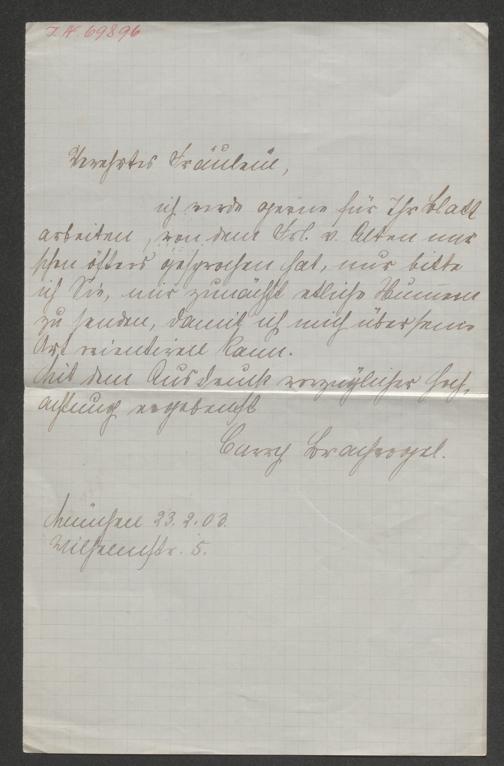 I.N. 69896
Verehrtes Fräulein,
ich werde gerne für Ihr Blatt
arbeiten, von dem Frl. v. Alten mir
schon öfters gesprochen hat, nur bitte
ich Sie, mir zunächst etliche Nummern
zu senden, damit ich mich über seine
Art orientieren kann.
Mit dem Ausdruck vorzüglicher Hoch-
achtung ergebenst
Carry Brachvogel.
München 23.2.03.
Wilhelmstr. 5.